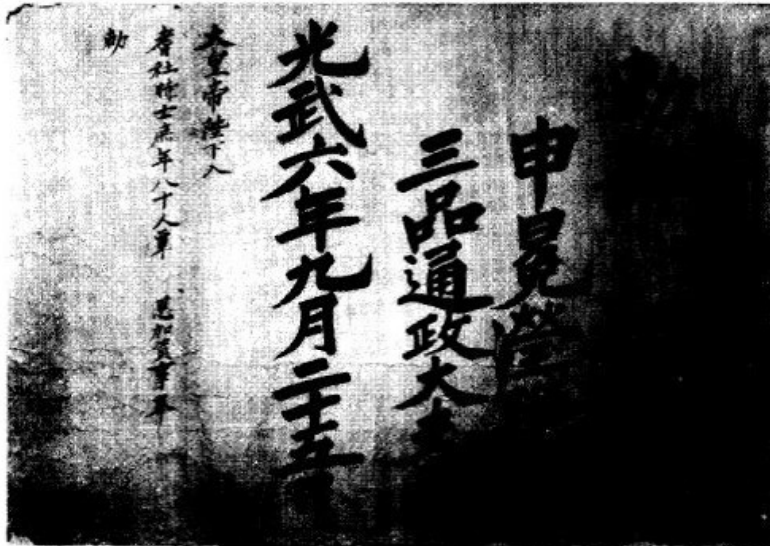 勅
申冕瑩
三品通政大夫
光武六年九月二十五
大皇帝陛下入
耆社時士庶年八十人單 恩加資事奉
勅